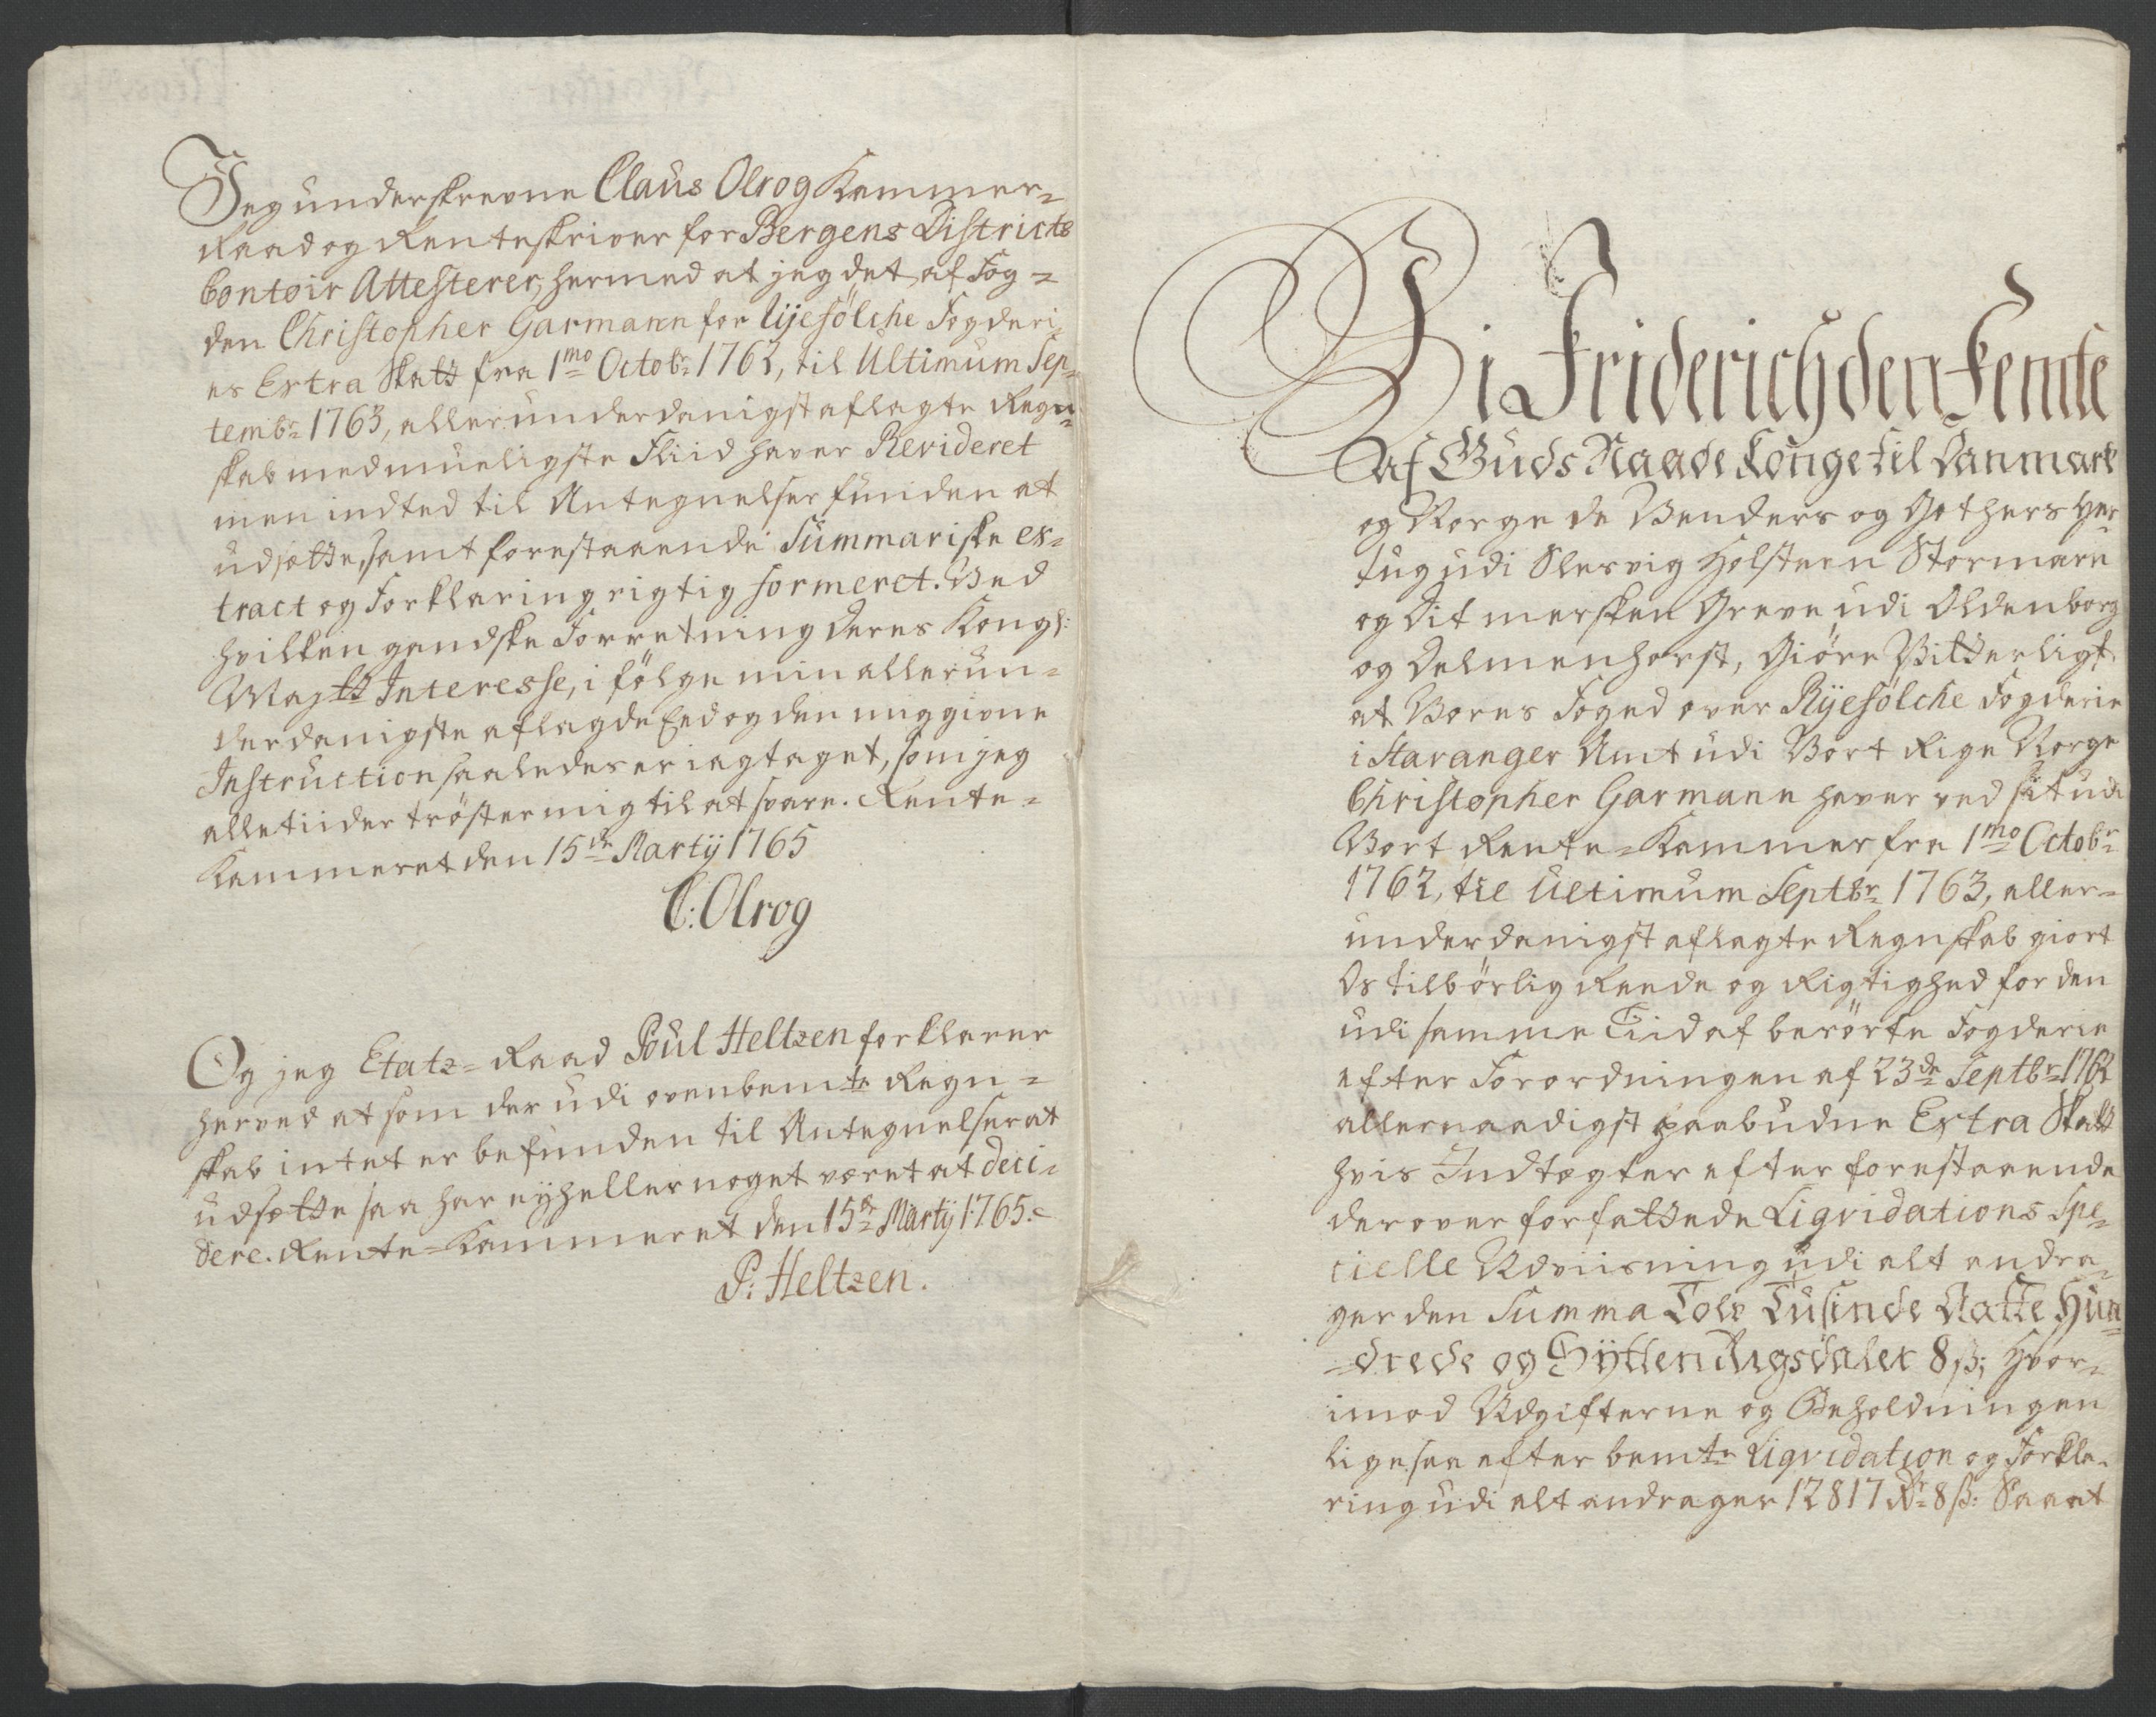 Jeg underskrevne Claus Olrog Kammer-
Raad og Renteskriver for Bergens Districts
Contoir Attesterer, hermed at jeg det af Fog-
den Christopher Garmann for Ryefölche Fogderi-
es Extra Skatt fra 1mo Octobr 1762, til Ultimum Sep-
tembr 1763, allerunderdanigst aflagte Regn-
skab med mueligste Fliid haver Revideret
men indted til Antegnelser funden at
udsætte, samt forestaaende Summariske Ex-
tract og Forklaring rigtig formeret. Ved
hvilken gandske Forretning Deres Kongl:
Maytts Interesse, i fölge min allerun-
derdanigste aflagde Eed og den mig givne
Instruction saaledes er iagtaget, som jeg
alletiider tröster mig til at svare. Rente-
Kammeret den 15de Martij 1765
C: Olrog
Og jeg Etatz-Raad Poul Heltzen forklarer
herved at som der udi ovenbemte Regn-
skab intet er befunden til Antegnelser at
udsætte saa har ey heller noget været at deci-
dere. Rente-Kammeret den 15de Martij 1765.
P: Heltzen.
Vi Friderich den Femte
Af Guds Naade Konge til Danmark
og Norge de Venders og Gothers Her-
tug udi Slesvig Holsteen Stormarn
og Ditmersken Greve udi Oldenborg
og Delmenhorst, Giöre Vitterligt
at Vores Foged over Ryefölche Fogderie
i Stavanger Amt udi Vort Rige Norge
Christopher Garmann haver ved sit udi
Vort Rente-Kammer fra 1mo Octobr
1762, til Ultimum Septbr 1763, aller-
underdanigst aflagte Regnskab giort
Os tilbörlig Reede og Rigtighed for den
udi samme Tiid af berörte Fogderie
efter Forordningen af 23de Septbr 1762
allernaadigst paabudne Extra Skatt
hvis Indtægter efter forestaaende
derover forfattede Liqvidations Spe-
cielle Udviisning udi alt andra-
ger den Summa Tolv Tusinde Aatte Hun-
-drede og Sytten Rigsdaler 8 ß; Hvor-
imod Udgifterne og Beholdningen
ligesaa efter bemte Liqvidation og Forkla-
ring udi alt andrager 12817 Rd 8 ß: Saa at